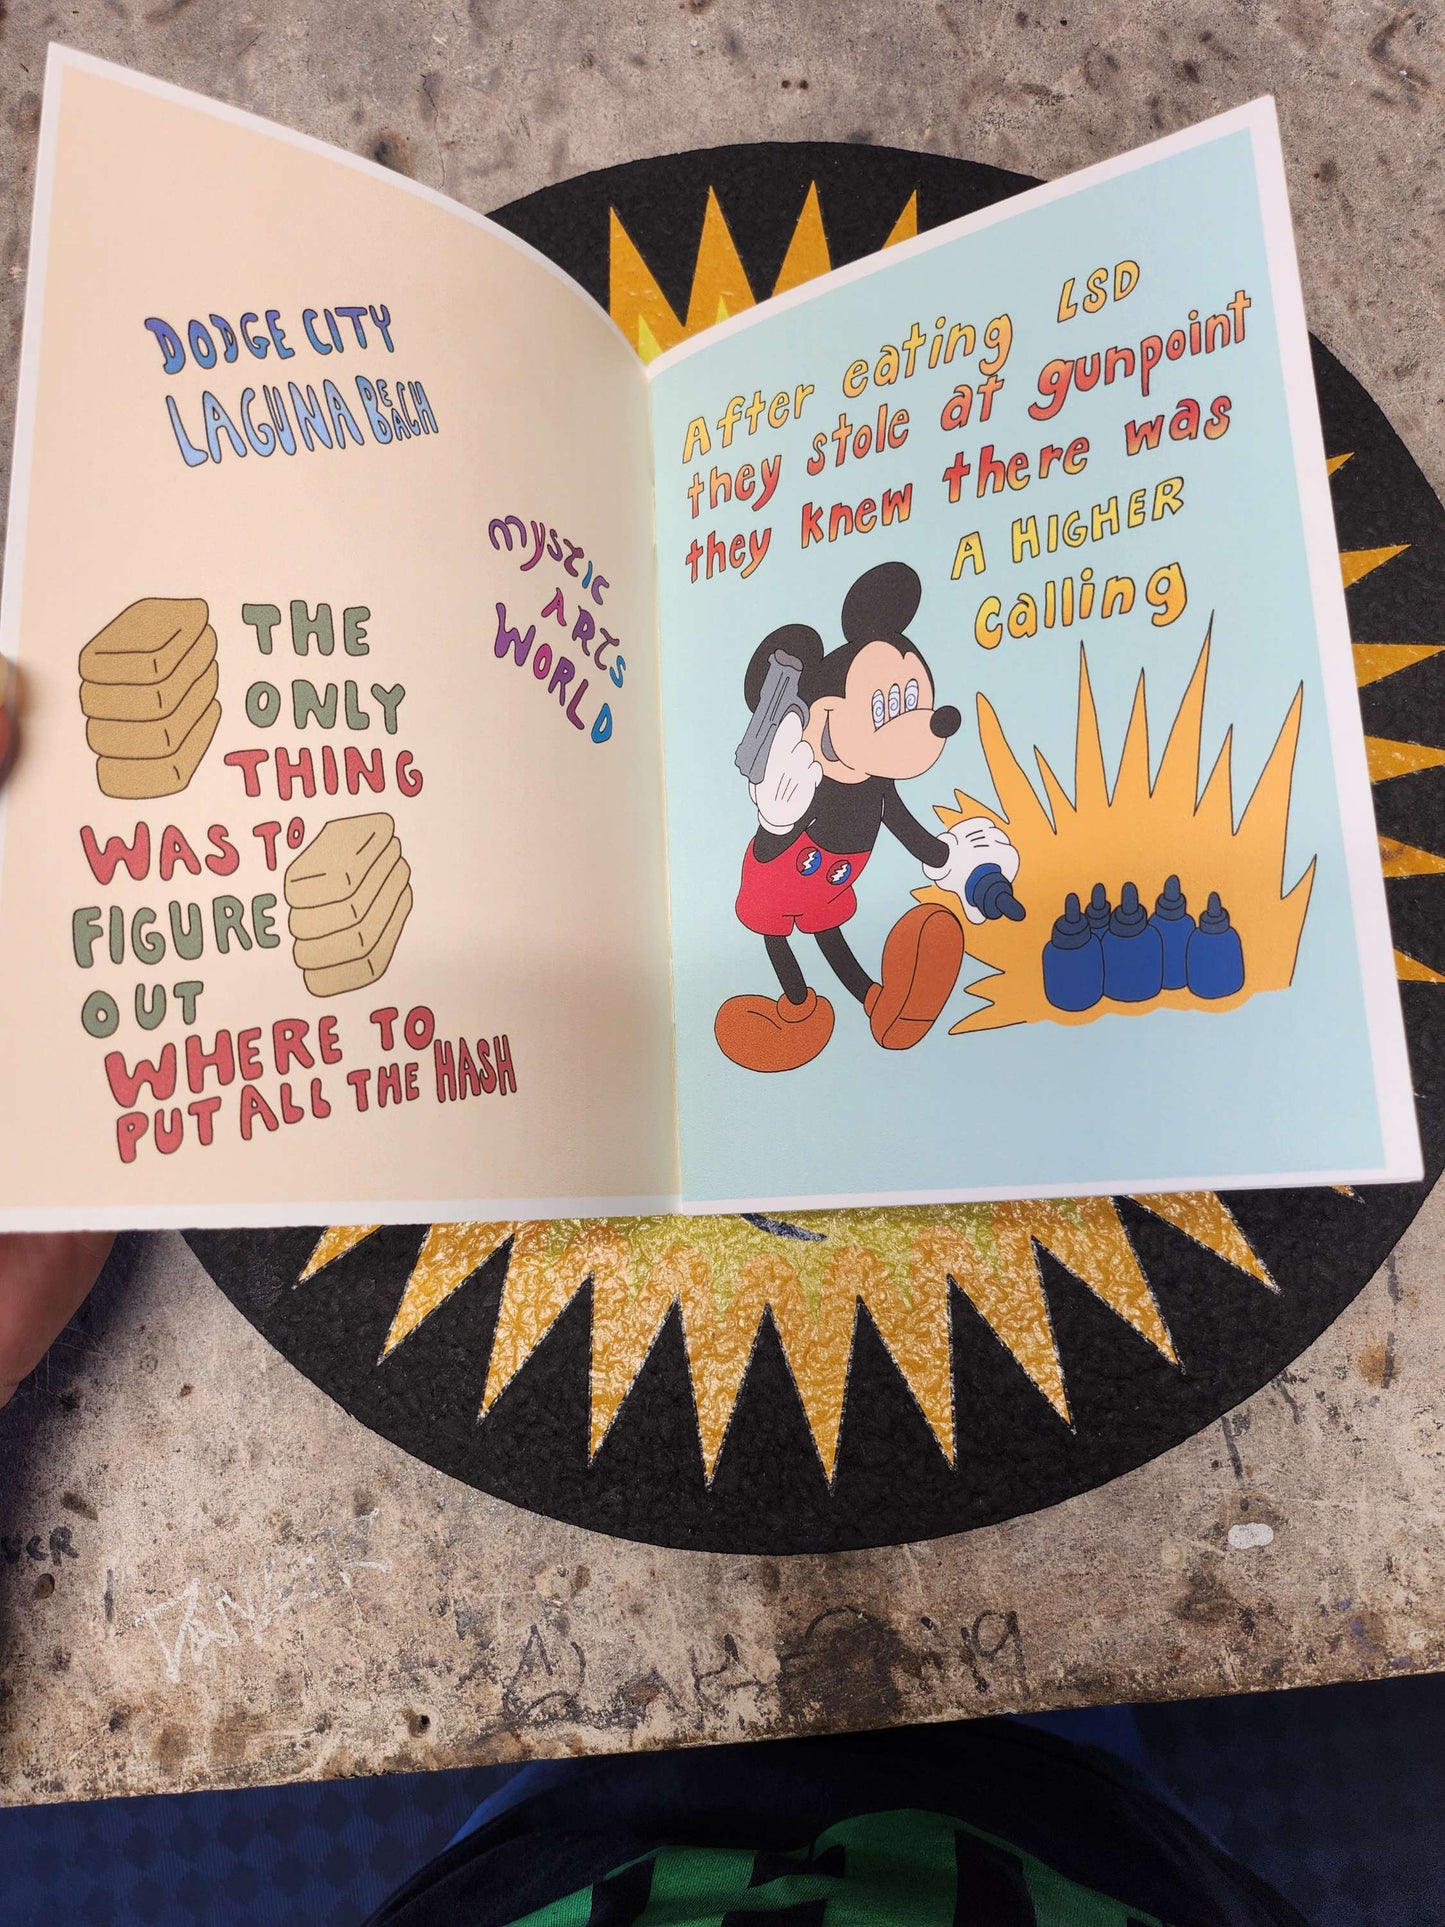 DODGE CITY
LAGUNA BEACH
MYSTIC
ARTS
WORLD
THE
ONLY
THING
WAS TO
FIGURE
OUT
WHERE TO
PUT ALL THE HASH
After eating LSD
they stole at gunpoint
they knew there was
A HIGHER
calling